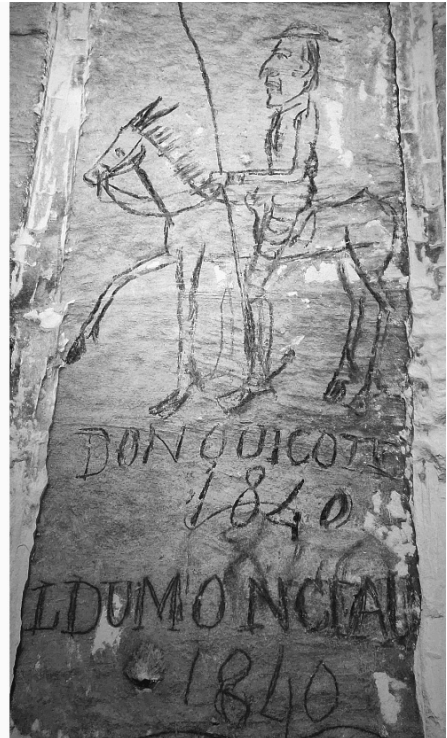 DON QUICOTE
1840
L DUMONCEAU
1840